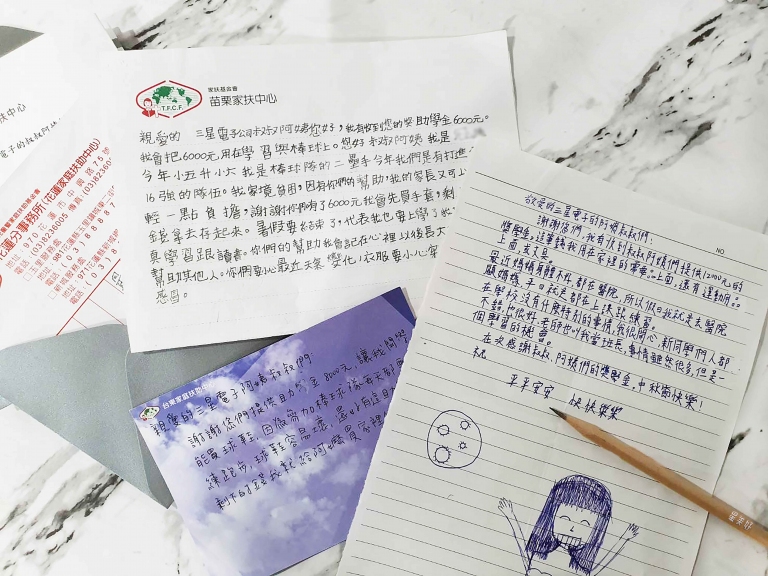 家扶基金會
T.F.C.F.
苗栗家扶中心
親愛的 三星電子公司叔叔阿姨您好,我有收到您的獎助學金6000元。
我會把6000元用在學習與棒球上。您好叔叔阿姨 我是
今年小五升小六 我是棒球隊的二壘手今年我們是有打進
16強的隊伍。我家境貧困,因有你們的幫助,我的家長又可以
輕一點負擔,謝謝你們有了6000元我會先買手套,剩
錢拿去存起來。暑假要結束了,代表我也要上學了
真學習跟讀書。你們的幫助我會記在心裡以後長大
幫助其他人。你們要小心最近天氣變化,衣服要小心
感冒。
敬愛的三星電子的阿姨叔叔們:
謝謝你們,我有收到叔叔阿姨們提供12000元的
獎學金,這筆錢我用在家裡的電費
上面,還有運動用
上面
最近媽媽身體不佳,都在醫院,所以假日我就是去醫院
顧媽媽,平日就是都在上課跟練習。
在學校沒有什麼特別的事情,我很開心,新同學們人都
不錯,也很好,老師也叫我當班長,事情雖然很多,但是一
個學習的機會。
在次感謝叔叔、阿姨們的獎學金,中秋節快樂!
祝
平平安安 快快樂樂
NO.
台東家庭扶助中心
親愛的三星電子阿姨叔叔們
謝謝您們提供助學金8000元,讓我開學
能買球鞋,因我參加棒球隊每天都要
練跑步,球鞋容易壞,還好有這
剩下的錢我就給阿嬤買家裡
扶中心
電子的叔叔阿姨
花蓮分事務所(花蓮家庭扶助中心)